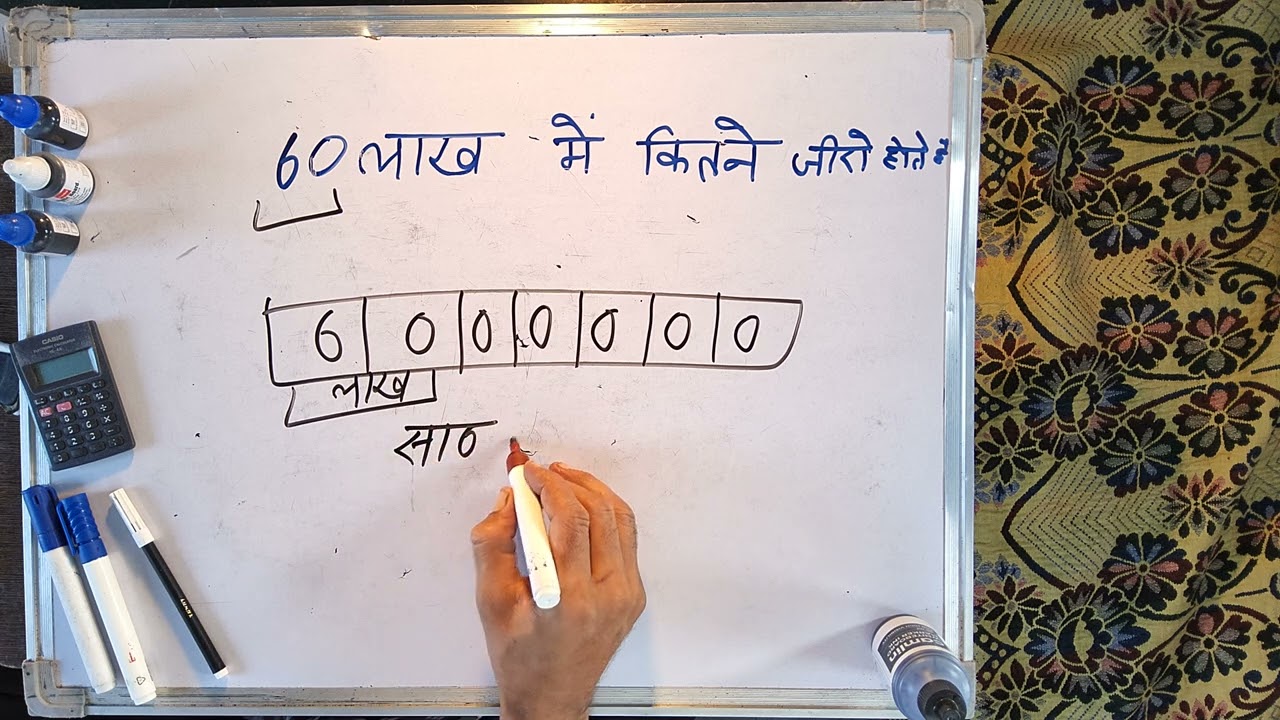 60 लाख में कितने जीरो होते है
6 0 0 0 0 0 0
लाख
साठ
CASIO